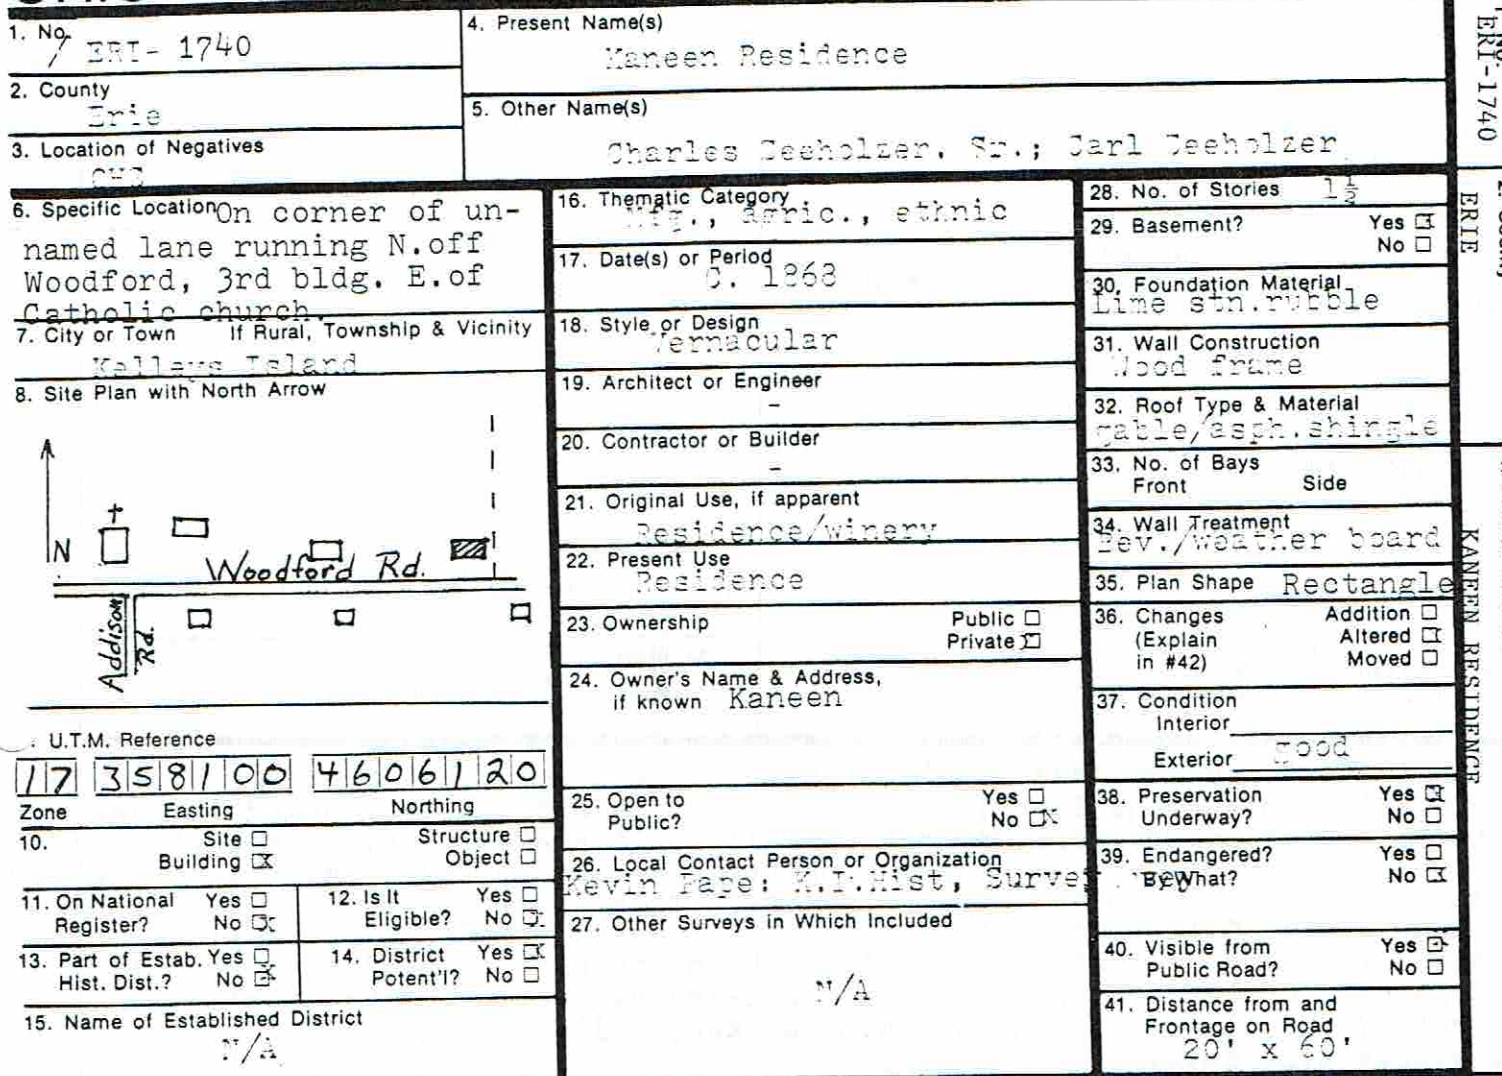 1. No.
ERI- 1740
2. County
Erie
3. Location of Negatives
4. Present Name(s)
Kaneen Residence
5. Other Name(s)
Charles Seeholzer, Sr.; Carl Seeholzer
6. Specific Location On corner of un-
named lane running N.off
Woodford, 3rd bldg. E.of
Catholic church.
7. City or Town If Rural, Township & Vicinity
Kelleys Island
8. Site Plan with North Arrow
N
Woodford Rd.
Addison
Rd.
U.T.M. Reference
17 358100 4606120
Zone Easting Northing
10. Site
Structure
Building
Object
11. On National Register? Yes No
12. Is It Eligible? Yes No
13. Part of Estab. Hist. Dist.? Yes No
14. District Potent'l? Yes No
15. Name of Established District
N/A
16. Thematic Category
Mfg., agric., ethnic
17. Date(s) or Period
C. 1868
18. Style or Design
Vernacular
19. Architect or Engineer
-
20. Contractor or Builder
-
21. Original Use, if apparent
Residence/winery
22. Present Use
Residence
23. Ownership Public
Private
24. Owner's Name & Address,
if known Kaneen
25. Open to Yes
Public? No
26. Local Contact Person or Organization
Kevin Pape: K.I.Hist, Survey
27. Other Surveys in Which Included
N/A
28. No. of Stories 1½
29. Basement? Yes
No
30. Foundation Material
Lime stn.rubble
31. Wall Construction
Wood frame
32. Roof Type & Material
gable/asph.shingle
33. No. of Bays
Front Side
34. Wall Treatment
Bev./weather board
35. Plan Shape Rectangle
36. Changes Addition
(Explain Altered
in #42) Moved
37. Condition
Interior
Exterior good
38. Preservation Yes
Underway? No
39. Endangered? Yes
By What? No
40. Visible from Yes
Public Road? No
41. Distance from and
Frontage on Road
20' x 60'
ERI-1740
ERIE
KANEEN RESIDENCE